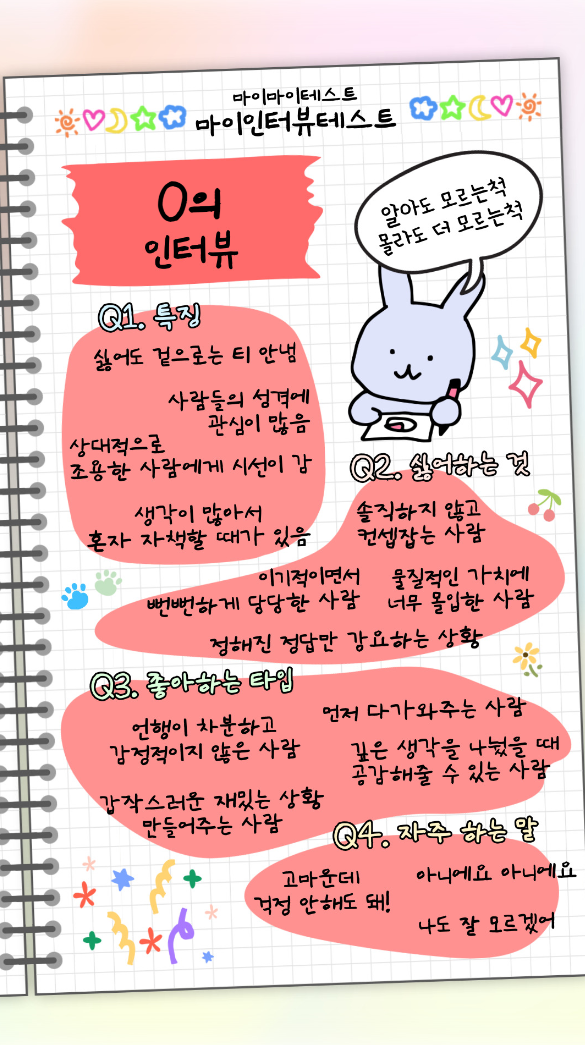 마이마이테스트
마이인터뷰테스트
O의
인터뷰
알아도 모르는척
몰라도 더 모르는척
Q1. 특징
싫어도 겉으로는 티 안냄
사람들의 성격에
관심이 많음
상대적으로
조용한 사람에게 시선이 감
생각이 많아서
혼자 자책할 때가 있음
Q2. 싫어하는 것
솔직하지 않고
컨셉잡는 사람
이기적이면서
뻔뻔하게 당당한 사람
물질적인 가치에
너무 몰입한 사람
정해진 정답만 강요하는 상황
Q3. 좋아하는 타입
언행이 차분하고
감정적이지 않은 사람
먼저 다가와주는 사람
깊은 생각을 나눴을 때
공감해줄 수 있는 사람
갑작스러운 재밌는 상황
만들어주는 사람
Q4. 자주 하는 말
고마운데
걱정 안해도 돼!
아니에요 아니에요
나도 잘 모르겠어